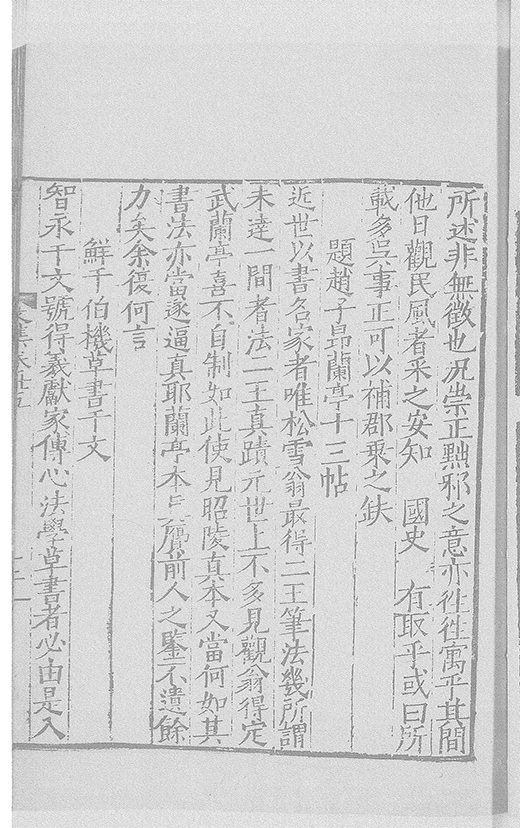 所述非無徵也况崇正黜邪之意亦徃徃寓乎其間
他日觀民風者采之安知　國史　有取乎或曰所
載多吳事正可以補郡乘之缺
題趙子昂蘭亭十三帖
近世以書名家者唯松雪翁最得二王筆法幾所謂
未達一間者法二王真蹟元世上不多見觀翁得定
武蘭亭喜不自制如此使見昭陵真本又當何如其
書法亦當遂逼真耶蘭亭本㠯贋前人之鑒不遺餘
力矣余復何言
鮮于伯機草書千文
智永千文號得羲獻家傳心法學草書者必由是入